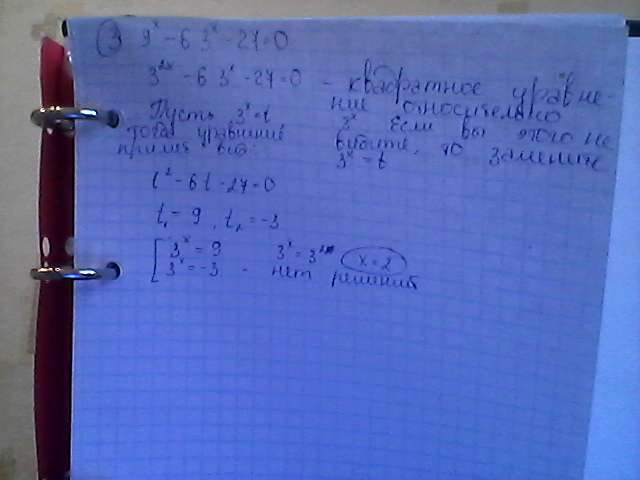 3 9ˣ - 6 3ˣ - 27 = 0
3²ˣ - 6 3ˣ - 27 = 0 - квадратное уравне-
ние относительно
3ˣ Если вы этого не
видите, то замените
3ˣ = t
Пусть 3ˣ = t
тогда уравнение
примет вид:
t² - 6t - 27 = 0
t₁ = 9, t₂ = -3
3ˣ = 9 3ˣ = 3² x = 2
3ˣ = -3 - нет решений